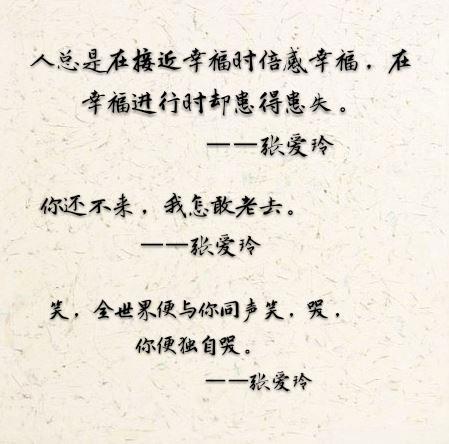 人总是在接近幸福时倍感幸福，在
幸福进行时却患得患失。
——张爱玲
你还不来，我怎敢老去。
——张爱玲
笑，全世界便与你同声笑，哭，
你便独自哭。
——张爱玲